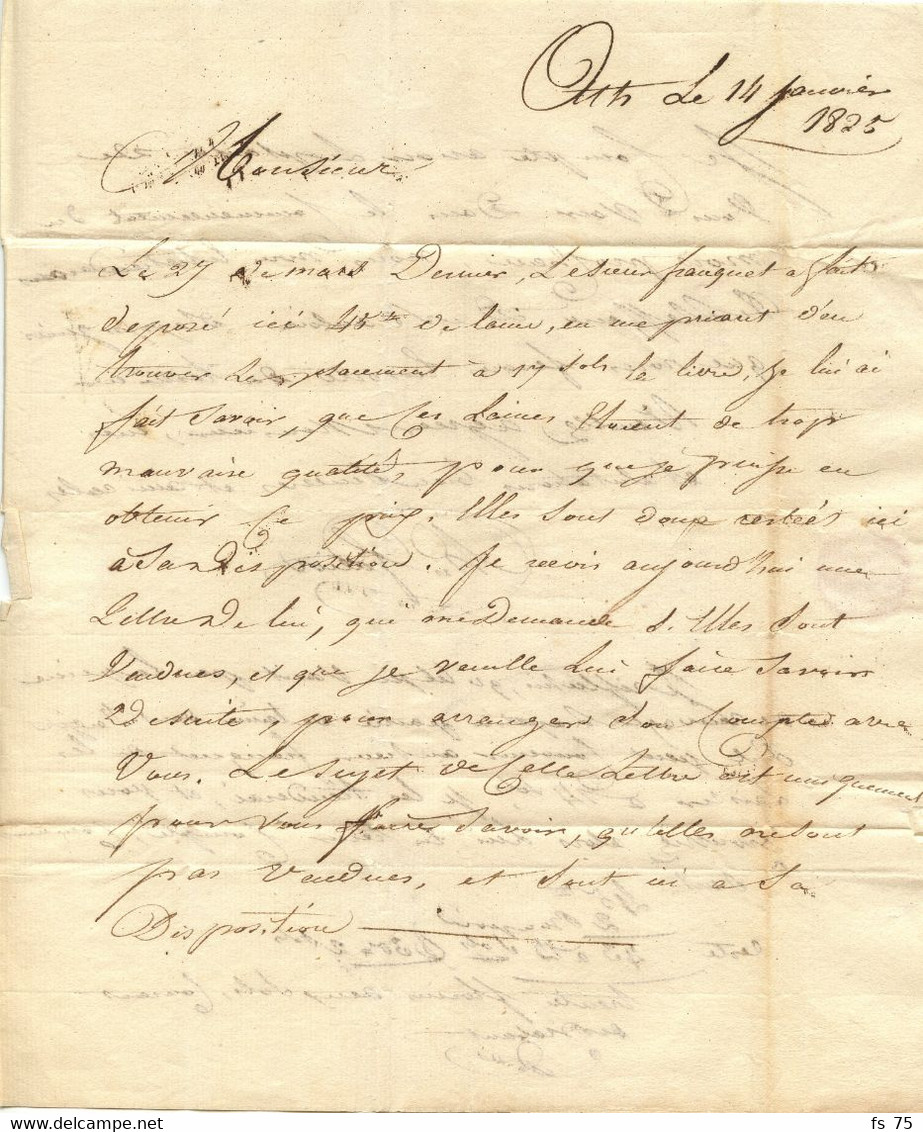 Ath Le 14 janvier
1825
Monsieur
Le 27 de mars Dernier, Le sieur fauquet a fait
deposé ici 45 de laine, en me priant d'en
trouver Le placement à 17 sols la livre, je lui ai
fait savoir, que Ces Laines Etoient de trop
mauvaise qualité, pour que je puisse en
obtenir Ce prix. Elles sont donc restées ici
à Sa Disposition. Je recois aujourd'hui une
Lettre De lui, que me Demande si Elles sont
Vendues, et que je veuille Lui faire savoir
De suite, pour arranger son Compte avec
Vous. Le sujet de Cette Lettre est uniquement
pour vous faire savoir, qu'elles ne sont
pas Vendues, et sont ici a Sa
Disposition
fs 75